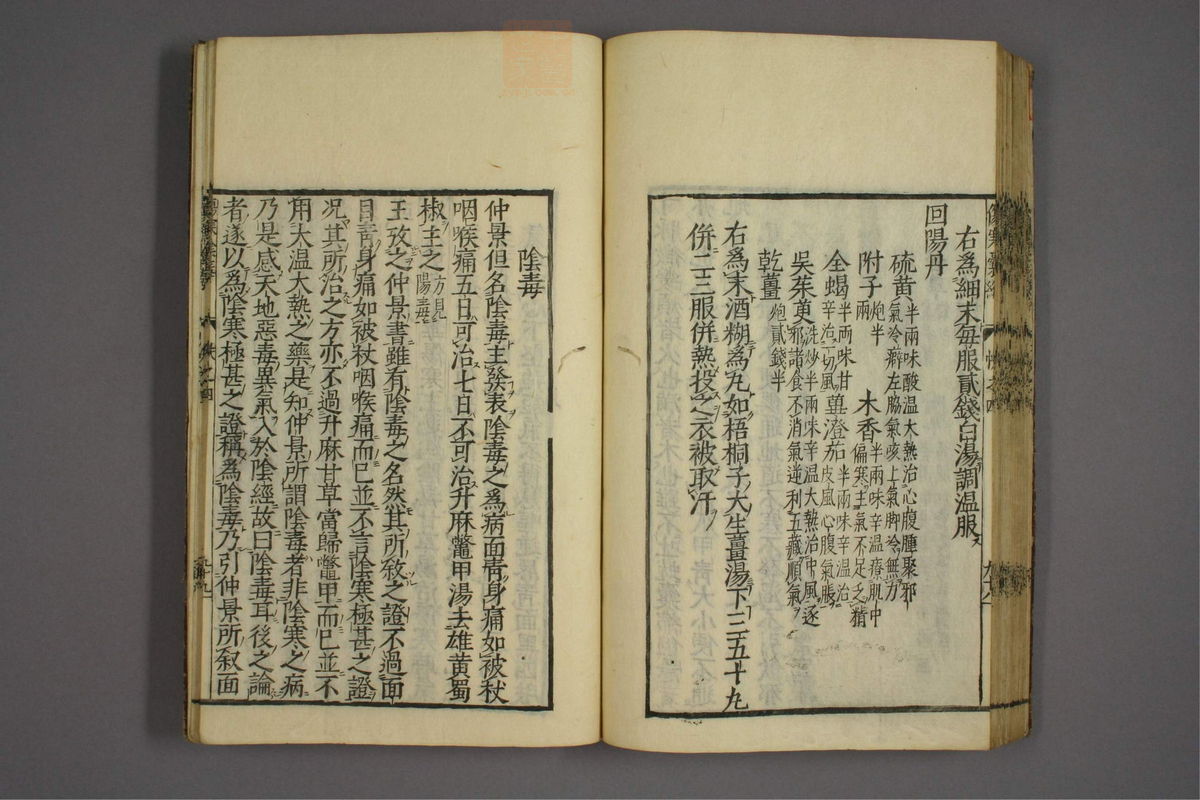 右爲細末每服貳錢白湯調温服
回陽丹
硫黃半兩味酸温大熱治心腹腫聚邪
氣冷癖左脇氣咳上氣脚冷無力
附子炮半兩
木香半兩味辛温療肌中
偏寒主氣不足乏精
全蝎半兩味甘
辛治一切風
蓽澄茄半兩味辛温治
皮風心腹氣脹
吳茱萸洗炒半兩味辛温大熱治中風逐
邪諸食不消氣逆利五藏順氣
乾薑炮貳錢半
右爲末酒糊爲丸如梧桐子大生薑湯下三五十丸
併二三服併熱投之衣被取汗
陰毒
仲景但名陰毒主發表陰毒之爲病面青身痛如被杖
咽喉痛五日可治七日不可治升麻鼈甲湯去雄黃蜀
椒主之方見陽毒
王攷之仲景書雖有陰毒之名然其所敘之證不過面
目青身痛如被杖咽喉痛而已並不言陰寒極甚之證
况其所治之方亦不過升麻甘草當歸鼈甲而已並不
用大温大熱之藥是知仲景所謂陰毒者非陰寒之病
乃是感天地惡毒異氣入於陰經故曰陰毒耳後之論
者遂以爲陰寒極甚之證稱爲陰毒乃引仲景所叙面